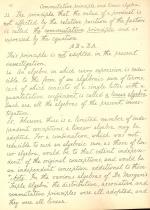 Commutative principle and linear algebra.
11. The principle that the value of a product is
not affected by the relative position of the factors
is called the commutative principle and is
expressed by the equation
AB = BA.
This principle is not adopted in the present
investigation.
12. An algebra in which every expression is reducible
to the form of an algebraic sum of terms
each of which consists of a single letter with a
quantitative coefficient is called a linear algebra.
Such are all the algebras of the present investigation.
13. Wherever there is a limited number of independent
conceptions, a linear algebra may be
adopted. For a combination, which was not
reducible to such an algebraic sum as those of linear
algebra, would be to that extent independent
of the original conceptions, and would be
an independent conception additional to those
In the various algebras of De Morgan's
Triple Algebra, the distributive, associative and
commutative principles were all adopted, and
they were all linear.